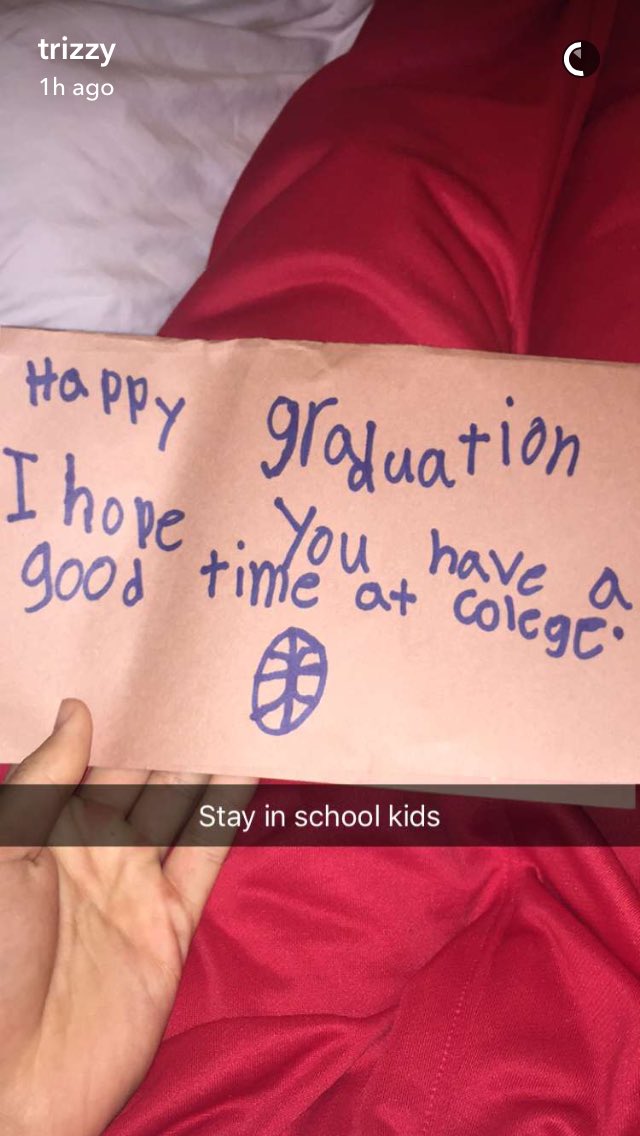 trizzy
1h ago
Happy graduation
I hope you have a
good time at colege.
Stay in school kids